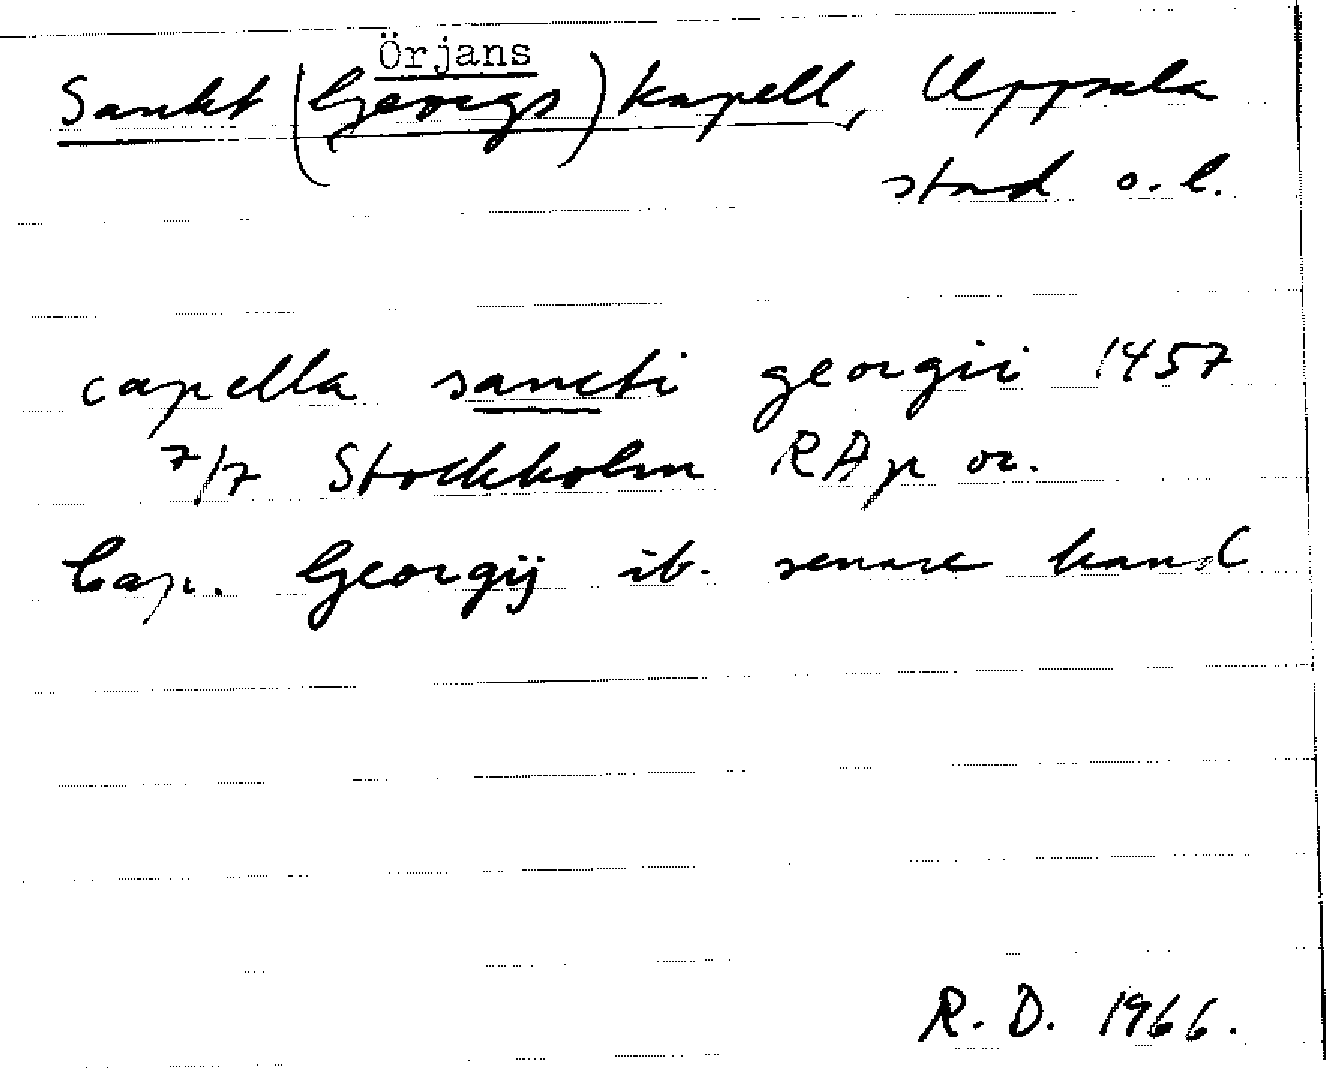 Örjans
Sankt (Georgs) kapell, Uppsala
stad o. l.
capella sancti georgii 1457
7/7 Stockholm RAp or.
Cap. Georgij ib. senare hand
R. D. 1966.